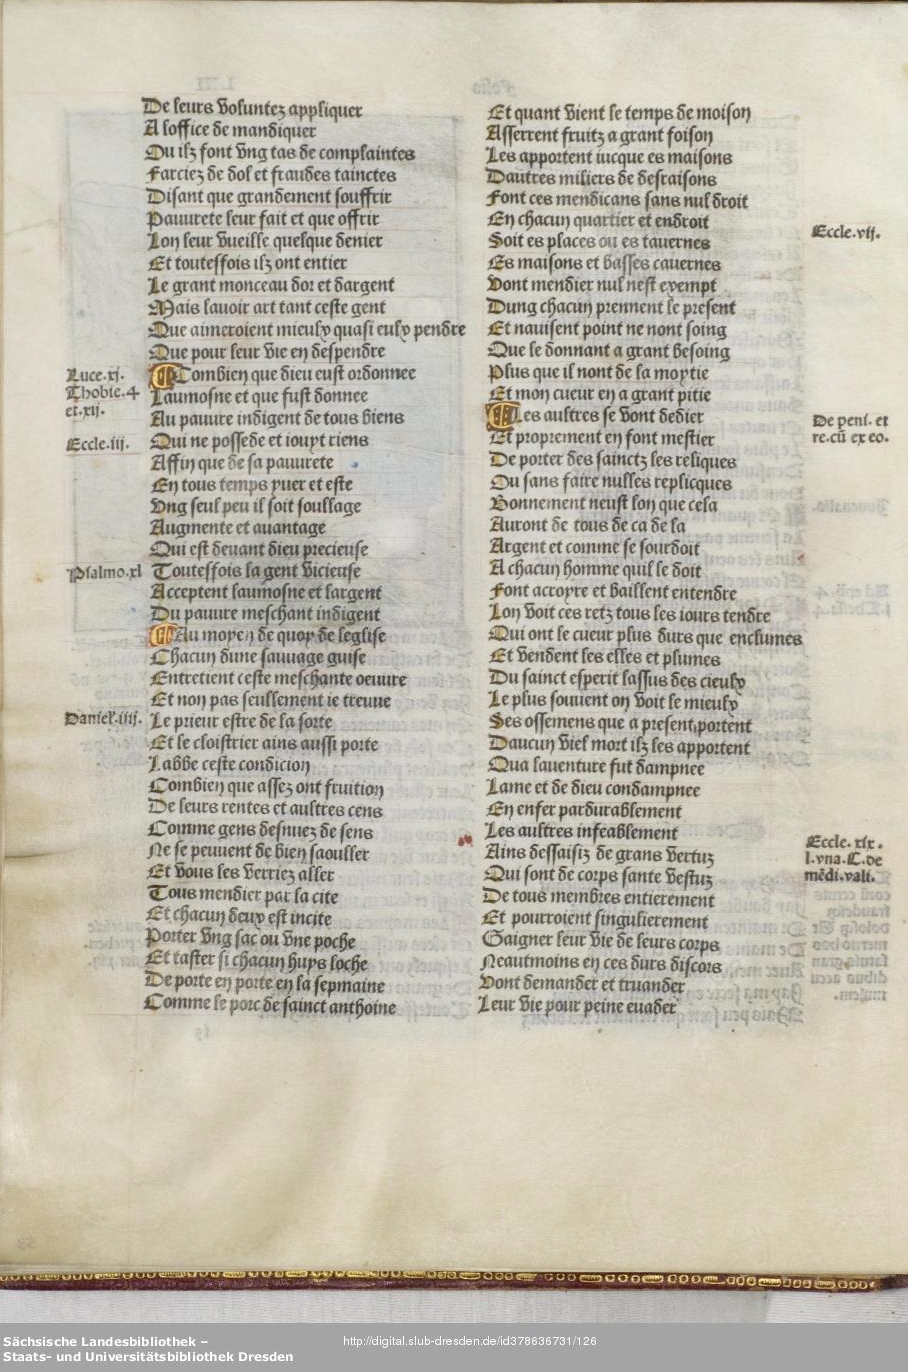 De leurs voluntez appliquer
A loffice de mandiquer
Ou ilz font vng tas de complaintes
Farciez de dol et fraudes tainctes
Disant que grandement souffrir
Pauurete leur fait et que offrir
Lon leur vueille quelque denier
Et toutesfois ilz ont entier
Le grant monceau dor et dargent
Mais lauoir art tant ceste gent
Que aimeroient mieulx quasi eulx pendre
Que pour leur vie en despendre
Combien que dieu eust ordonnee
Laumosne et que fust donnee
Au pauure indigent de tous biens
Qui ne possede et iouyt riens
Affin que de sa pauurete
En tous temps yuer et este
Vng seul peu il soit soullage
Augmente et auantage
Qui est deuant dieu precieuse
Toutesfois la gent vicieuse
Acceptent laumosne et largent
Du pauure meschant indigent
Au moyen de quoy de leglise
Chacun dune sauuage guise
Entretient ceste meschante oeuure
Et non pas seullement ie treuue
Le prieur estre de la sorte
Et le cloistrier ains aussi porte
Labbe ceste condicion
Combien que assez ont fruition
De leurs rentes et aultres cens
Comme gens desnuez de sens
Ne se peuuent de bien saouller
Et vous les verriez aller
Tous mendier par la cite
Et chacun deux est incite
Porter vng sac ou vne poche
Et taster si chacun huys loche
De porte en porte en la sepmaine
Comme le porc de sainct anthoine
Luce.xj.
Thobie.4
et.xij.
Eccle.iij.
Psalmo.xl
Daniel.iiij.
Et quant vient le temps de moison
Asserrent fruitz a grant foison
Les apportent iucque es maisons
Dautres miliers de desraisons
Font ces mendicans sans nul droit
En chacun quartier et endroit
Soit es places ou es tauernes
Es maisons et basses cauernes
Vont mendier nul nest exempt
Dung chacun prennent le present
Et nauisent point ne nont soing
Que le donnant a grant besoing
Plus que il nont de la moytie
Et mon cueur en a grant pitie
Les aultres se vont dedier
Et proprement en font mestier
De porter des sainctz les reliques
Ou sans faire nulles replicques
Bonnement neust lon que cela
Auront de tous de ca de la
Argent et comme se sourdoit
A chacun homme quil le doit
Font acroyre et baillent entendre
Lon voit ces retz tous les iours tendre
Qui ont le cueur plus durs que enclumes
Et vendent les elles et plumes
Du sainct esperit lassus des cieulx
Le plus souuent on voit le mieulx
Ses ossemens que a present portent
Daucun viel mort ilz les apportent
Qua lauenture fut dampnee
Lame et de dieu condampnee
En enfer pardurablement
Les aultres infeablement
Ains dessaisiz de grans vertuz
Qui sont de corps sante vestuz
De tous membres entierement
Et pourroient singulierement
Gaigner leur vie de leurs corps
Neautmoins en ces durs discors
Vont demander et truander
Leur vie pour peine euader
Eccle.vij.
De peni. et
re.cū ex eo.
Eccle. xix.
l.vna.C.de
mēdi.vali.
Sächsische Landesbibliothek –
Staats- und Universitätsbibliothek Dresden
http://digital.slub-dresden.de/id378636731/126